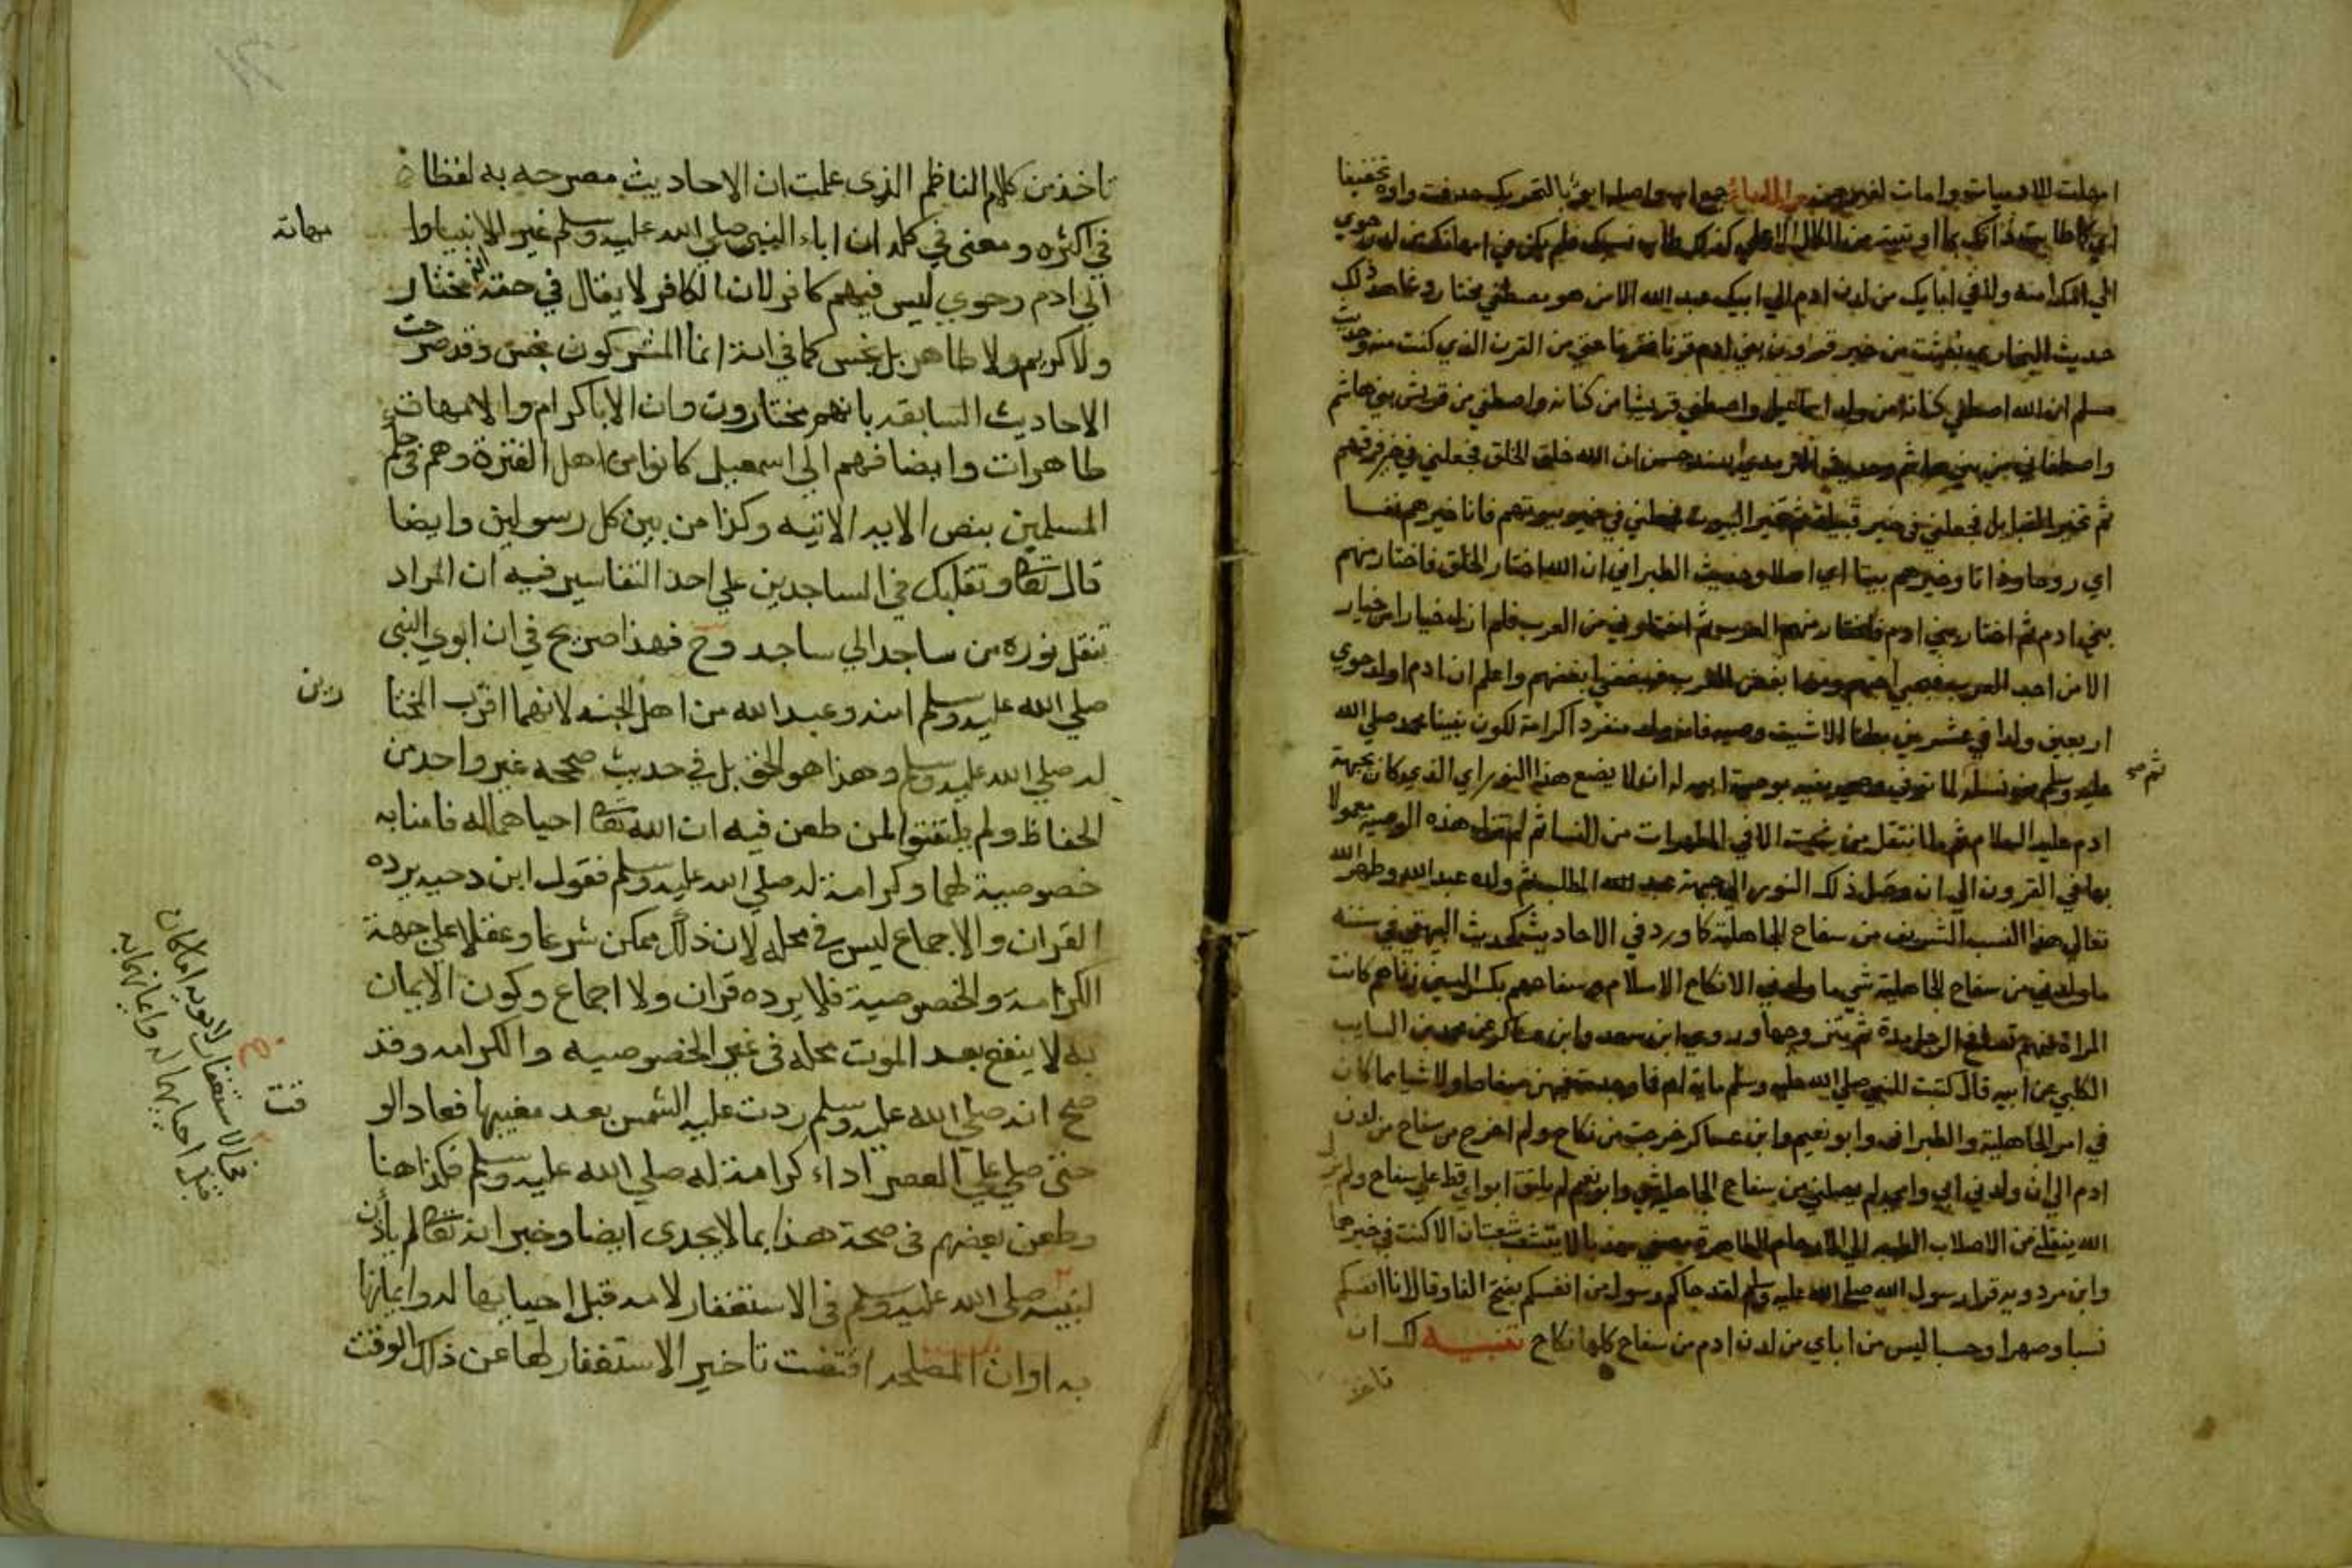 امهلت للادميات وامات لغيرهن والاباء جمع اب واصله ابو بالتحريك حذفت واوه تخفيفا
الي امك امنه ولا في ابايك من لدن ادم الي ابيك عبد الله الا من هو مصطفي مختار وشاهد ذلك
حديث البخاري بعثت من خير قرون بني ادم قرنا فقرنا حتي من القرن الذي كنت منه وحديث
مسلم ان الله اصطفي كنانة من ولد اسماعيل واصطفي قريشا من كنانه واصطفي من قريش بني هاشم
واصطفاني من بني هاشم وحديث الترمذي بسند حسن ان الله خلق الخلق فجعلني في خير فرقهم
ثم تخير القبايل فجعلني في خير قبيلة ثم تخير البيوت فجعلني في خير بيوتهم فانا خيرهم نفسا
اي روحا وذاتا وخيرهم بيتا اي اصلا وحديث الطبراني ان الله اختار الخلق فاختار منهم
بني ادم ثم اختار بني ادم فاختار منهم العرب ثم اختارني من العرب فلم ازل خيارا من خيار
الا من احب العرب فبحبي احبهم ومن ابغض العرب فببغضي ابغضهم واعلم ان ادم اولد حوي
اربعين ولدا في عشرين بطنا الا شيث وصيه فانه ولد منفردا كرامة لكون نبينا محمد صلي الله
عليه وسلم من نسله لما توفي وصي بنيه بوصية ابيه له ان لا يضع هذا النور اي الذي كان بجبهة
ثم صح
ادم عليه السلام ثم لما انتقل من شيث الا في المطهرات من النسا ثم لم تزل هذه الوصيه معمولا
بها في القرون الي ان وصل ذلك النور الي جبهة عبد المطلب ثم ولده عبد الله وطهر الله
تعالي هذا النسب الشريف من سفاح الجاهلية كما ورد في الاحاديث كحديث البيهقي في سننه
ما ولدني من سفاح الجاهلية شي ما ولدني الا نكاح الاسلام وسفاحهم بكسر السين زناهم كانت
المراة منهم تسافح الرجل مدة ثم يتزوجها وروي ابن سعد وابن عساكر عن محمد بن السايب
الكلبي عن ابيه قال كتبت للنبي صلي الله عليه وسلم ماية ام فما وجدت فيهن سفاحا ولا شيا مما كان
في امر الجاهلية والطبراني وابو نعيم وابن عساكر خرجت من نكاح ولم اخرج من سفاح من لدن
ادم الي ان ولدني ابي وامي لم يصبني من سفاح الجاهلية شي وابو نعيم لم يلتق ابواي قط علي سفاح ولم يزل
الله ينقلني من الاصلاب الطيبه الي الارحام الطاهرة مصفي مهذبا لا تتشعب شعبتان الا كنت في خيرهما
وابن مردويه قرا رسول الله صلي الله عليه وسلم لقد جاكم رسول من انفسكم بفتح الفا وقال انا انفسكم
نسبا وصهرا وحسبا ليس من اباي من لدن ادم من سفاح كلها نكاح تنبيه لك ان
تاخذ
تاخذ من كلام الناظم الذي علمت ان الاحاديث مصرحه به لفظا
في اكثره ومعني في كله ان اباء النبي صلي الله عليه وسلم غير الانبيا وا
مهاته
الي ادم وحوي ليس فيهم كافر لان الكافر لا يقال في حقه انه مختار
ولا كريم ولا طاهر بل نجس كما في اية انما المشركون نجس وقد صرحت
الاحاديث السابقه بانهم مختارون وان الابا كرام والامهات
طاهرات وايضا فهم الي اسمعيل كانوا من اهل الفترة وهم في حكم
المسلمين بنص الايه الاتيه وكذا من بين كل رسولين وايضا
قال تعالي وتقلبك في الساجدين علي احد التفاسير فيه ان المراد
تنقل نوره من ساجد الي ساجد وح فهذا صريح في ان ابوي النبي
صلي الله عليه وسلم امنه وعبد الله من اهل الجنه لانهما اقرب المختا
رين
له صلي الله عليه وسلم وهذا هو الحق بل في حديث صححه غير واحد من
الحفاظ ولم يلتفتوا لمن طعن فيه ان الله تعالي احياهما له فامنا به
خصوصية لهما وكرامة له صلي الله عليه وسلم فقول ابن دحيه يرده
القران والاجماع ليس في محله لان ذلك ممكن شرعا وعقلا علي جهة
الكرامة والخصوصية فلا يرده قران ولا اجماع وكون الايمان
به لا ينفع بعد الموت محله في غير الخصوصيه والكرامه وقد
صح انه صلي الله عليه وسلم ردت عليه الشمس بعد مغيبها فعاد الو
قت
حتي صلي علي العصر اداء كرامة له صلي الله عليه وسلم فكذا هنا
وطعن بعضهم في صحة هذا بما لا يجدي ايضا وخبر انه تعالي لم يأذن
لنبيه صلي الله عليه وسلم في الاستغفار لامه قبل احيايها له وايمانها
به او ان المصلحه اقتضت تاخير الاستغفار لها عن ذلك الوقت